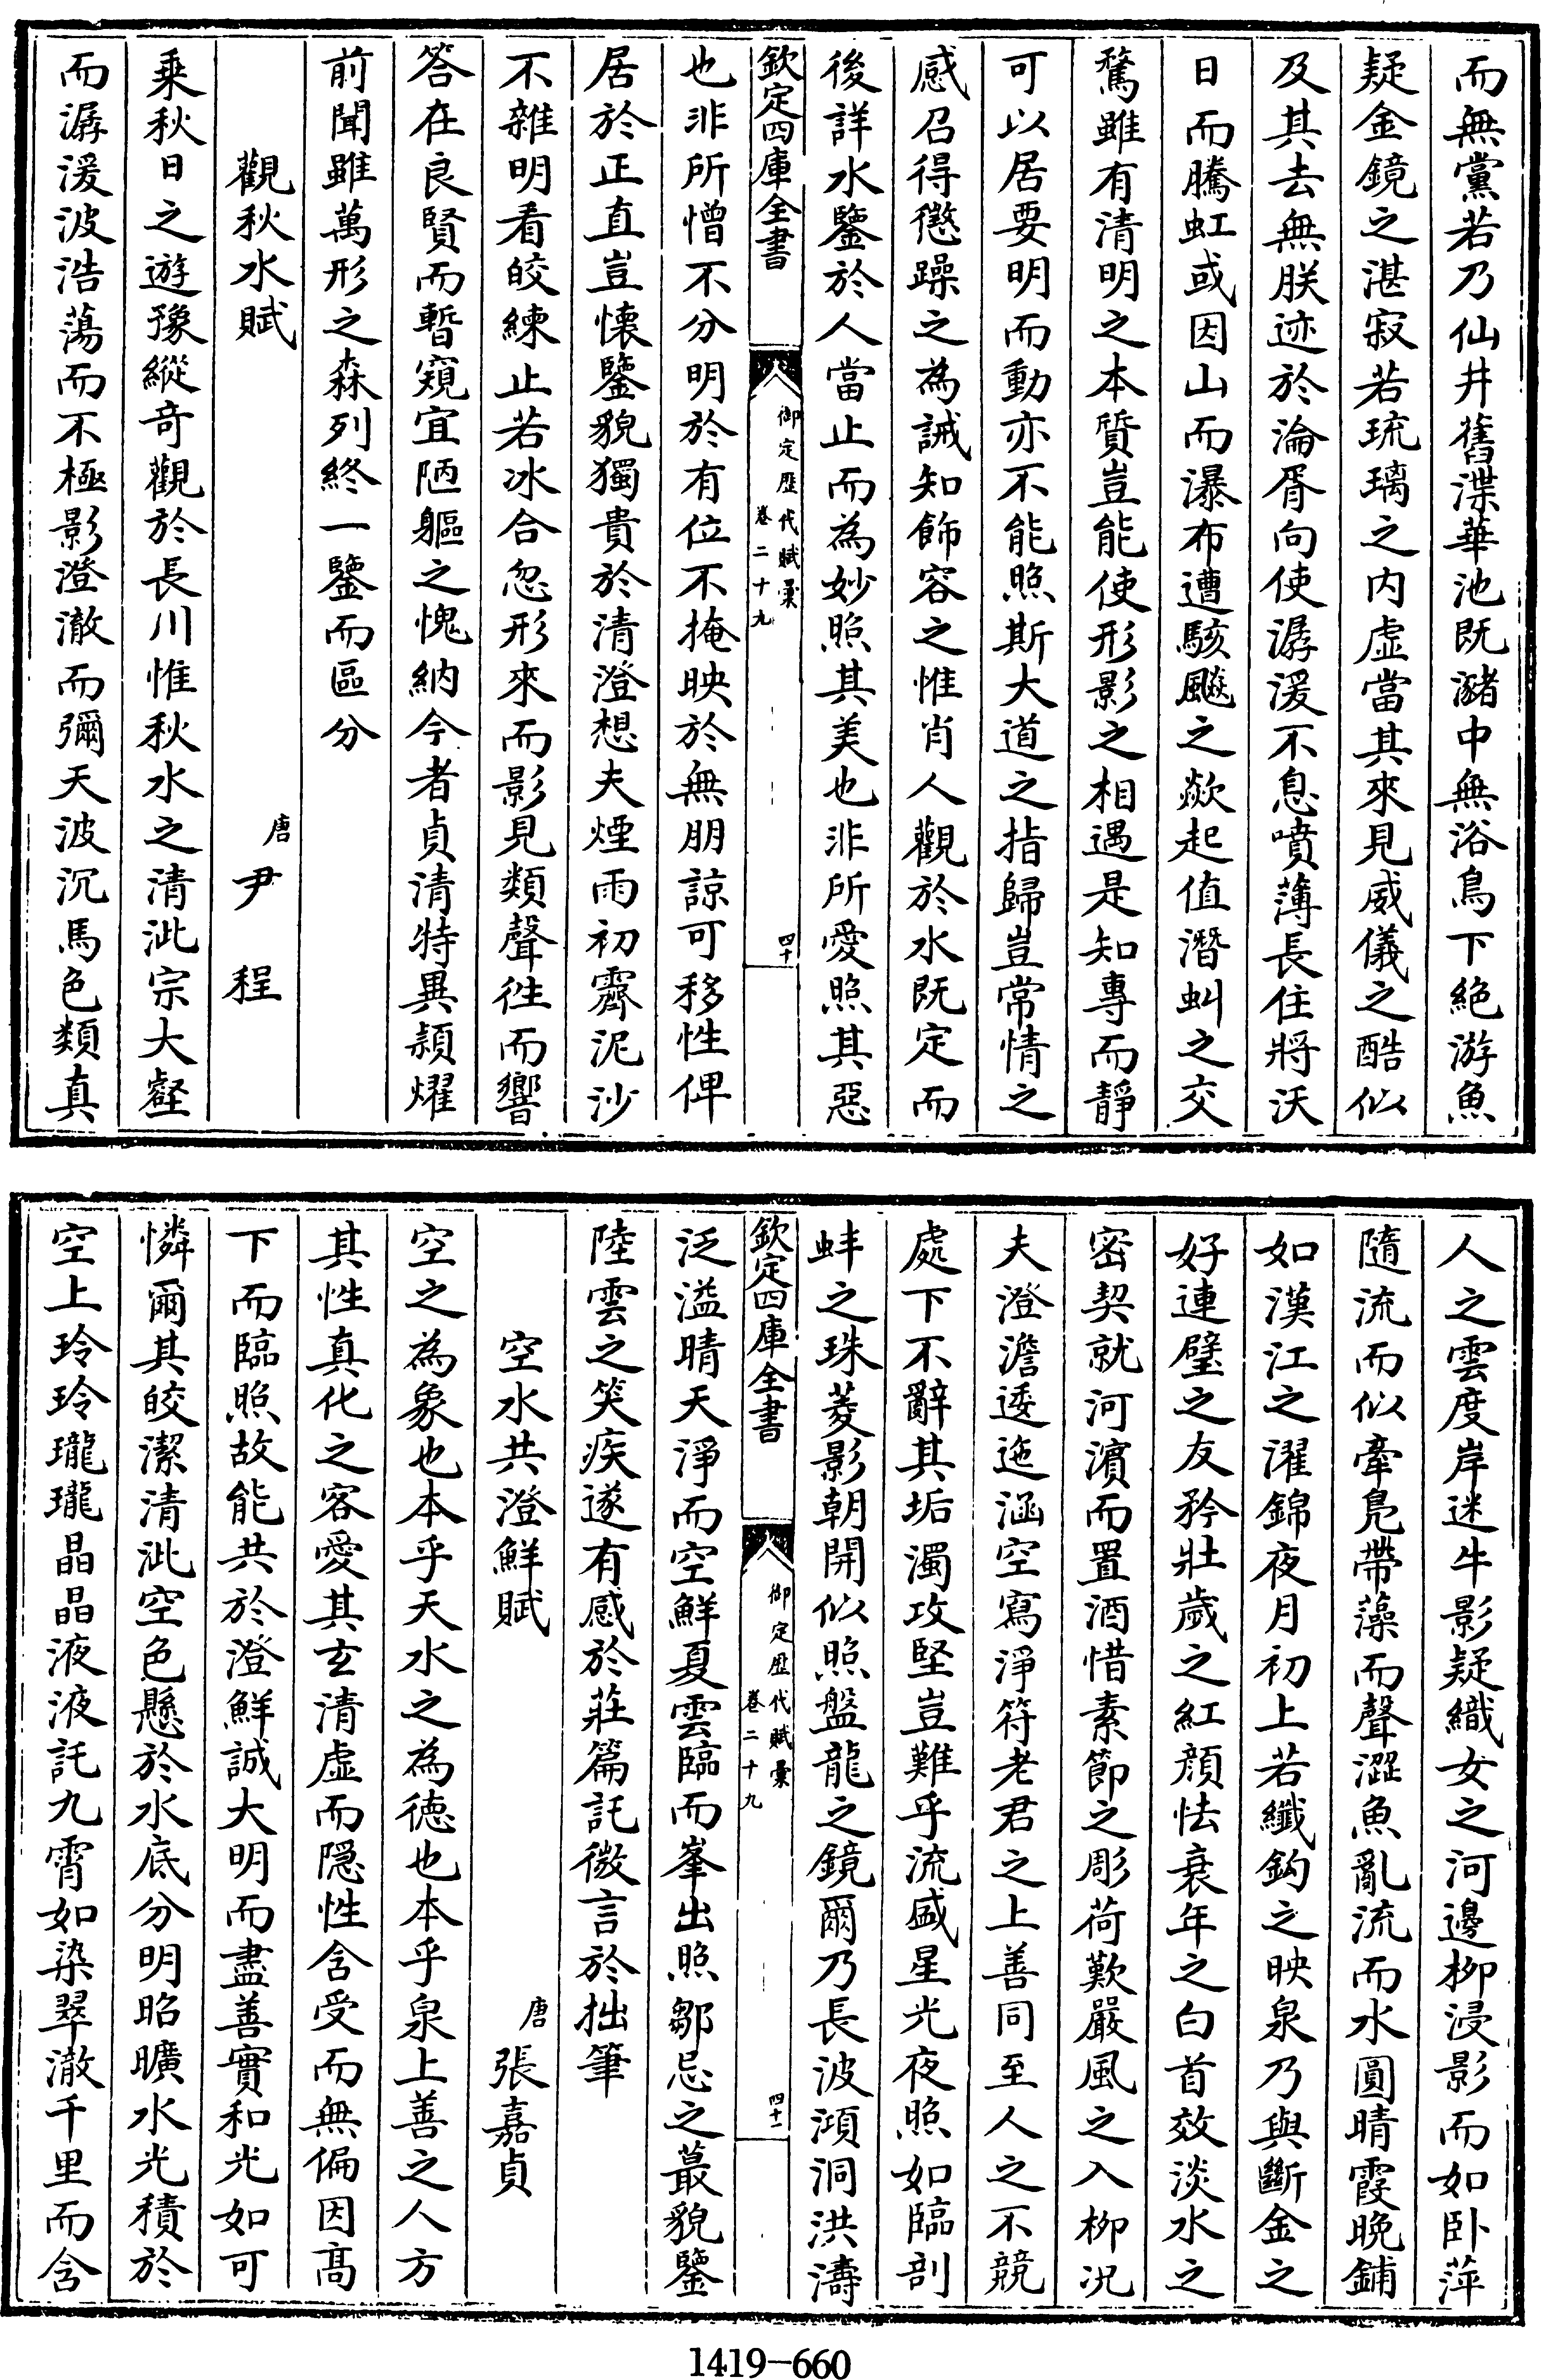 而無黨若乃仙井舊渫華池既瀦中無浴鳥下絶游魚
疑金鏡之湛寂若琉璃之内虚當其來見威儀之酷似
及其去無朕迹於淪胥向使潺湲不息噴薄長住將沃
日而騰虹或因山而瀑布遭駭飈之歘起值潛虯之交
騖雖有清明之本質豈能使形影之相遇是知專而靜
可以居要明而動亦不能照斯大道之指歸豈常情之
感召得懲躁之為誡知飾容之惟肖人觀於水既定而
後詳水鑒於人當止而為妙照其美也非所愛照其惡
欽定四庫全書
御定歷代賦彙
卷二十九
四十
也非所憎不分明於有位不掩映於無朋諒可移性俾
居於正直豈懷鑒貌獨貴於清澄想夫煙雨初霽泥沙
不雜明看皎練止若冰合忽形來而影見類聲徃而響
答在良賢而暫窺宜陋軀之愧納今者貞清特異頴燿
前聞雖萬形之森列終一鑒而區分
觀秋水賦
唐 尹程
乗秋日之遊豫縱奇觀於長川惟秋水之清泚宗大壑
而潺湲波浩蕩而不極影澄澈而彌天波沉馬色類真
人之雲度岸迷牛影疑織女之河邊栁浸影而如卧萍
隨流而似牽鳧帶藻而聲澀魚亂流而水圓晴霞晚鋪
如漢江之濯錦夜月初上若纖鈎之映泉乃與斷金之
好連璧之友矜壯歲之紅顔怯衰年之白首效淡水之
密契就河濱而置酒惜素節之彫荷歎嚴風之入栁况
夫澄澹逶迤涵空寫淨符老君之上善同至人之不競
處下不辭其垢濁攻堅豈難乎流盛星光夜照如臨剖
蚌之珠菱影朝開似照盤龍之鏡爾乃長波澒洞洪濤
欽定四庫全書
御定歷代賦彙
卷二十九
四十一
泛溢晴天淨而空鮮夏雲臨而峯出照鄒忌之蕞貌鑒
陸雲之笑疾遂有感於莊篇託微言於拙筆
空水共澄鮮賦
唐 張嘉貞
空之為象也本乎天水之為徳也本乎泉上善之人方
其性真化之容愛其玄清虚而隱性含受而無偏因髙
下而臨照故能共於澄鮮誠大明而盡善實和光如可
憐爾其皎潔清泚空色懸於水底分明昭曠水光積於
空上玲玲瓏瓏晶晶液液託九霄如染翠澈千里而含
1419-660